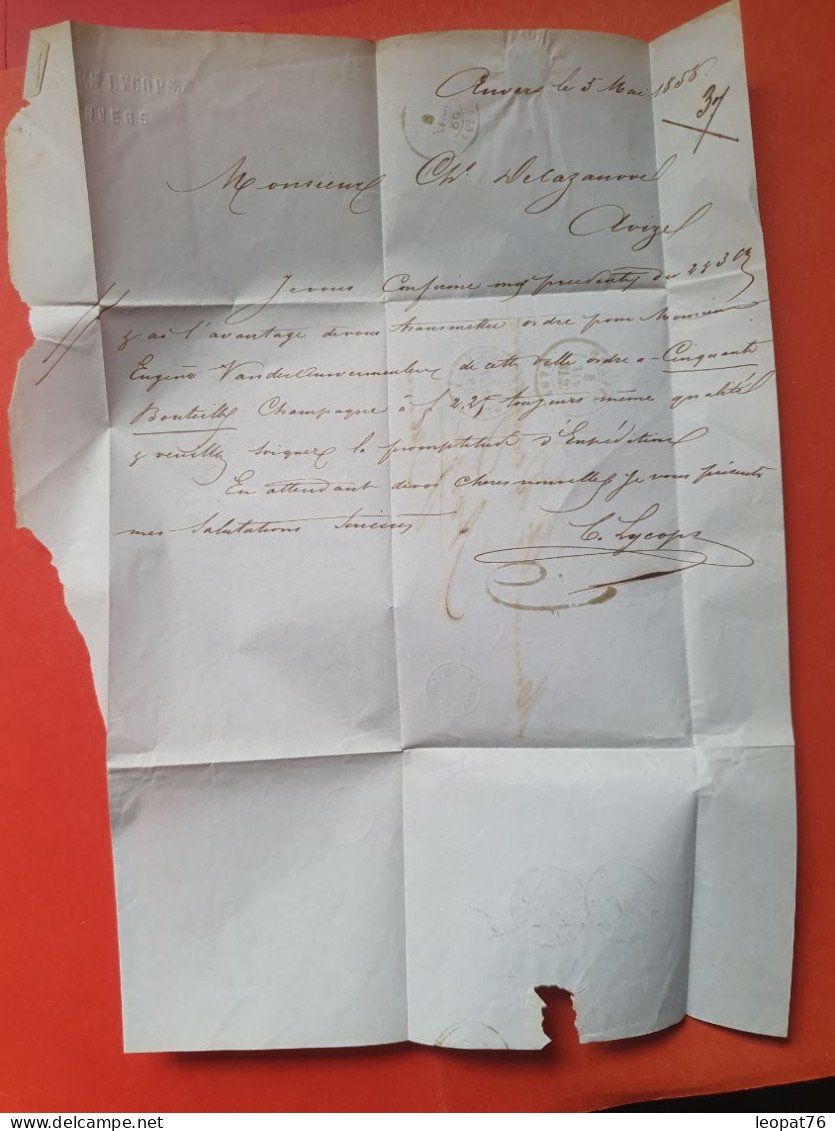 LYCOPS
NVERS
Anvers le 5 Mai 1858
37
Monsieur Ch. De Cazanove
Avize
Je vous Confirme mes précédentes du 22 & 3 Ct
& ai l'avantage de vous transmettre ordre pour Monsieur
Eugène de cette ville ordre o- Cinquante
Bouteilles Champagne à f 2.25 toujours même qualité
& veuillez soigner la promptitude d'Expédition
En attendant de vos chères nouvelles Je vous présente
mes Salutations Sincères
C. Lycops
leopat76